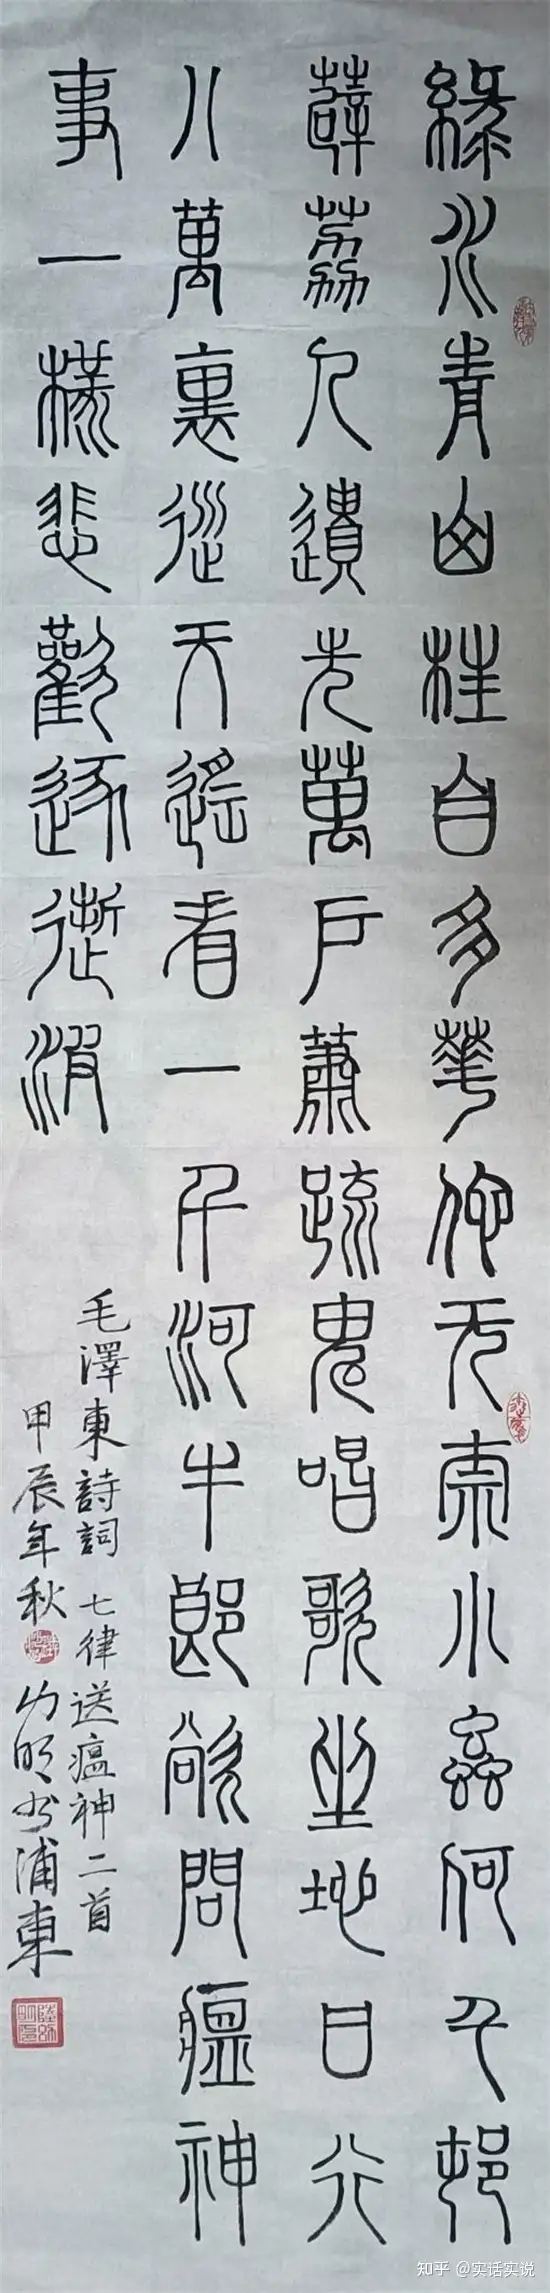 綠水青山枉自多華佗无柰小蟲何千邨
薜荔人遺矢萬戶蕭疏鬼唱歌坐地日行
八萬裏從天遙看一千河牛郎欲問瘟神
事一樣悲歡逐逝波
毛澤東詩詞 七律送瘟神二首
甲辰年秋 幼明书浦東
知乎 @实话实说